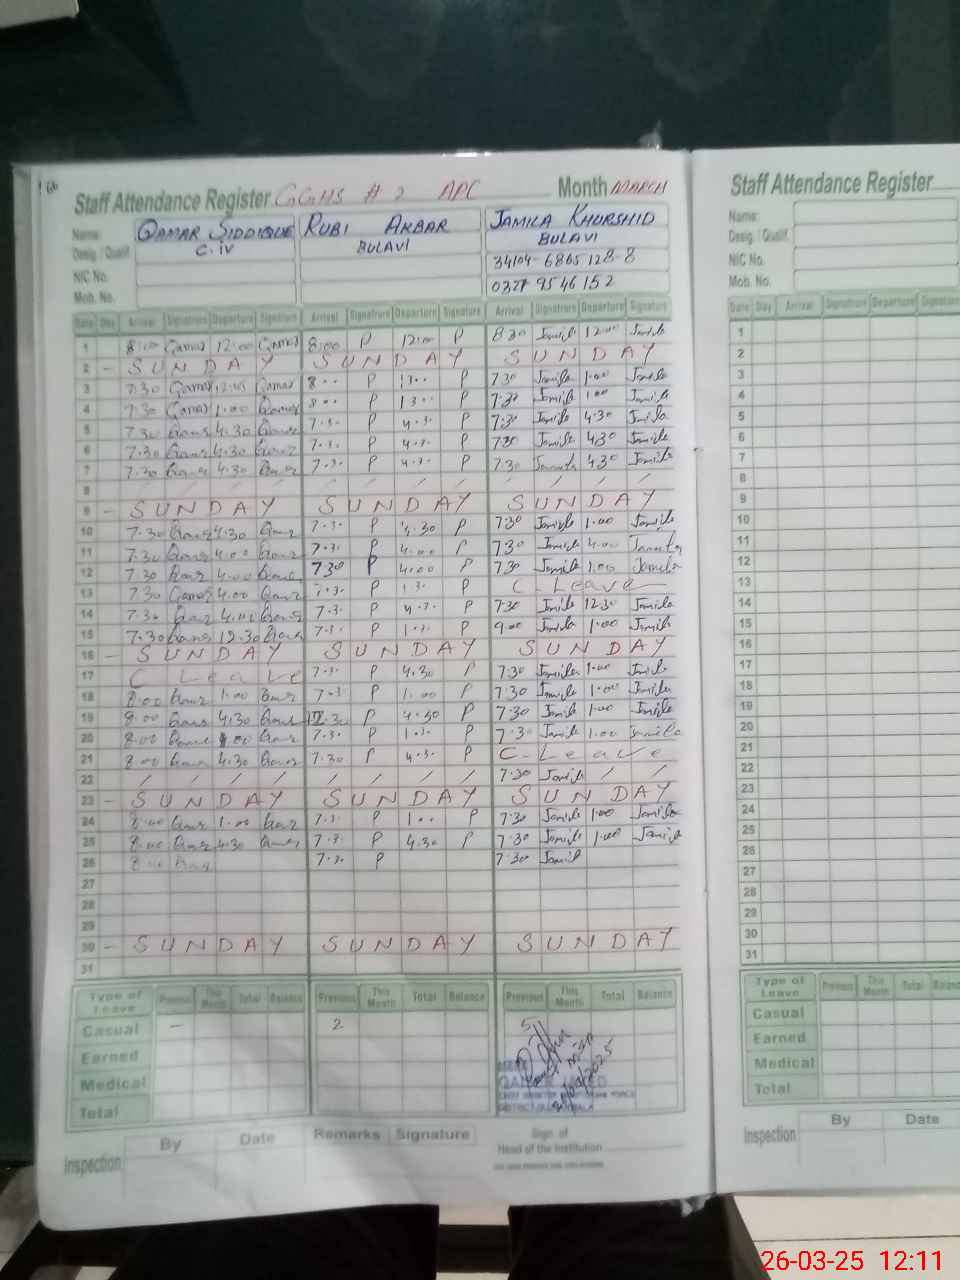 Staff Attendance Register GGHS # 2 APC Month MARCH
Name: QAMAR SIDDIQUE RUBI AKBAR JAMILA KHURSHID
Desig / Qualif. C.IV BULAVI BULAVI
NIC No. 34104-6865128-8
Mob. No. 0327 9546152
Date Day Arrival Signature Departure Signature Arrival Signature Departure Signature Arrival Signature Departure Signature
1 8:00 Qamar 12:00 Qamar 8:00 P 12:00 P 8 30 Jamila 12:00 Jamila
2 - SUNDAY SUNDAY SUNDAY
3 7.30 Qamar Qamar 8 .. P P 7.30 Jamila 1.00 Jamila
4 7.30 Qamar 1.00 Qamar 8 .. P P 7.30 Jamila 1.00 Jamila
5 7.30 Qamar 4.30 Qamar 7.3. P 4.3. P 7.30 Jamila 4.30 Jamila
6 7.30 Qamar 4.30 Qamar 7.3. P 4.3. P 7.30 Jamila 4.30 Jamila
7 7.30 Qamar 4.30 Qamar 7.3. P 4.3. P 7.30 Jamila 4.30 Jamila
8 / / / / / / / / / / / /
9 - SUNDAY SUNDAY SUNDAY
10 7.30 Qamar 4.30 Qamar 7.3. P 4.30 P 7.30 Jamila 1.00 Jamila
11 7.30 Qamar 4.00 Qamar 7.3. P 4.00 P 7.30 Jamila 4.00 Jamila
12 7.30 Qamar 4.00 Qamar 7.30 P 4.00 P 7.30 Jamila 1.00 Jamila
13 7.30 Qamar 4.00 Qamar 7.3. P 1.3. P C. Leave
14 7.30 Qamar 4.00 Qamar 7.3. P 4.3. P 7.30 Jamila 12.30 Jamila
15 7.30 Qamar 12.30 Qamar 7.3. P 1.3. P 9.00 Jamila 1.00 Jamila
16 - SUNDAY SUNDAY SUNDAY
17 C Leave 7.3. P 4.30 P 7.30 Jamila 1.00 Jamila
18 8.00 Qamar 1.00 Qamar 7.3. P 1.00 P 7.30 Jamila 1.00 Jamila
19 8.00 Qamar 4.30 Qamar P 4.30 P 7.30 Jamila 1.00 Jamila
20 8.00 Qamar Qamar 7.3. P 1.3. P 7.30 Jamila 1.00 Jamila
21 8.00 Qamar 4.30 Qamar 7.30 P 4.3. P C-Leave
22 / / / / / / / / 7.30 Jamila / /
23 - SUNDAY SUNDAY SUNDAY
24 8.00 Qamar 1.00 Qamar 7.3. P 1.00 P 7.30 Jamila 1.00 Jamila
25 8.00 Qamar 4.30 Qamar 7.3. P 4.30 P 7.30 Jamila 1.00 Jamila
26 8.00 Qamar 7.3. P 7.30 Jamila
27
28
29
30 - SUNDAY SUNDAY SUNDAY
31
Type of Leave Previous This Month Total Balance Previous This Month Total Balance Previous This Month Total Balance
Casual - 2 5
Earned
Medical
Total
Inspection By Date Remarks Signature Sign. of Head of the Institution
Staff Attendance Register
Name:
Desig / Qualif.
NIC No.
Mob. No.
Date Day Arrival Signature Departure Signature
1
2
3
4
5
6
7
8
9
10
11
12
13
14
15
16
17
18
19
20
21
22
23
24
25
26
27
28
29
30
31
Type of Leave Previous This Month Total Balance
Casual
Earned
Medical
Total
Inspection By Date
26-03-25 12:11